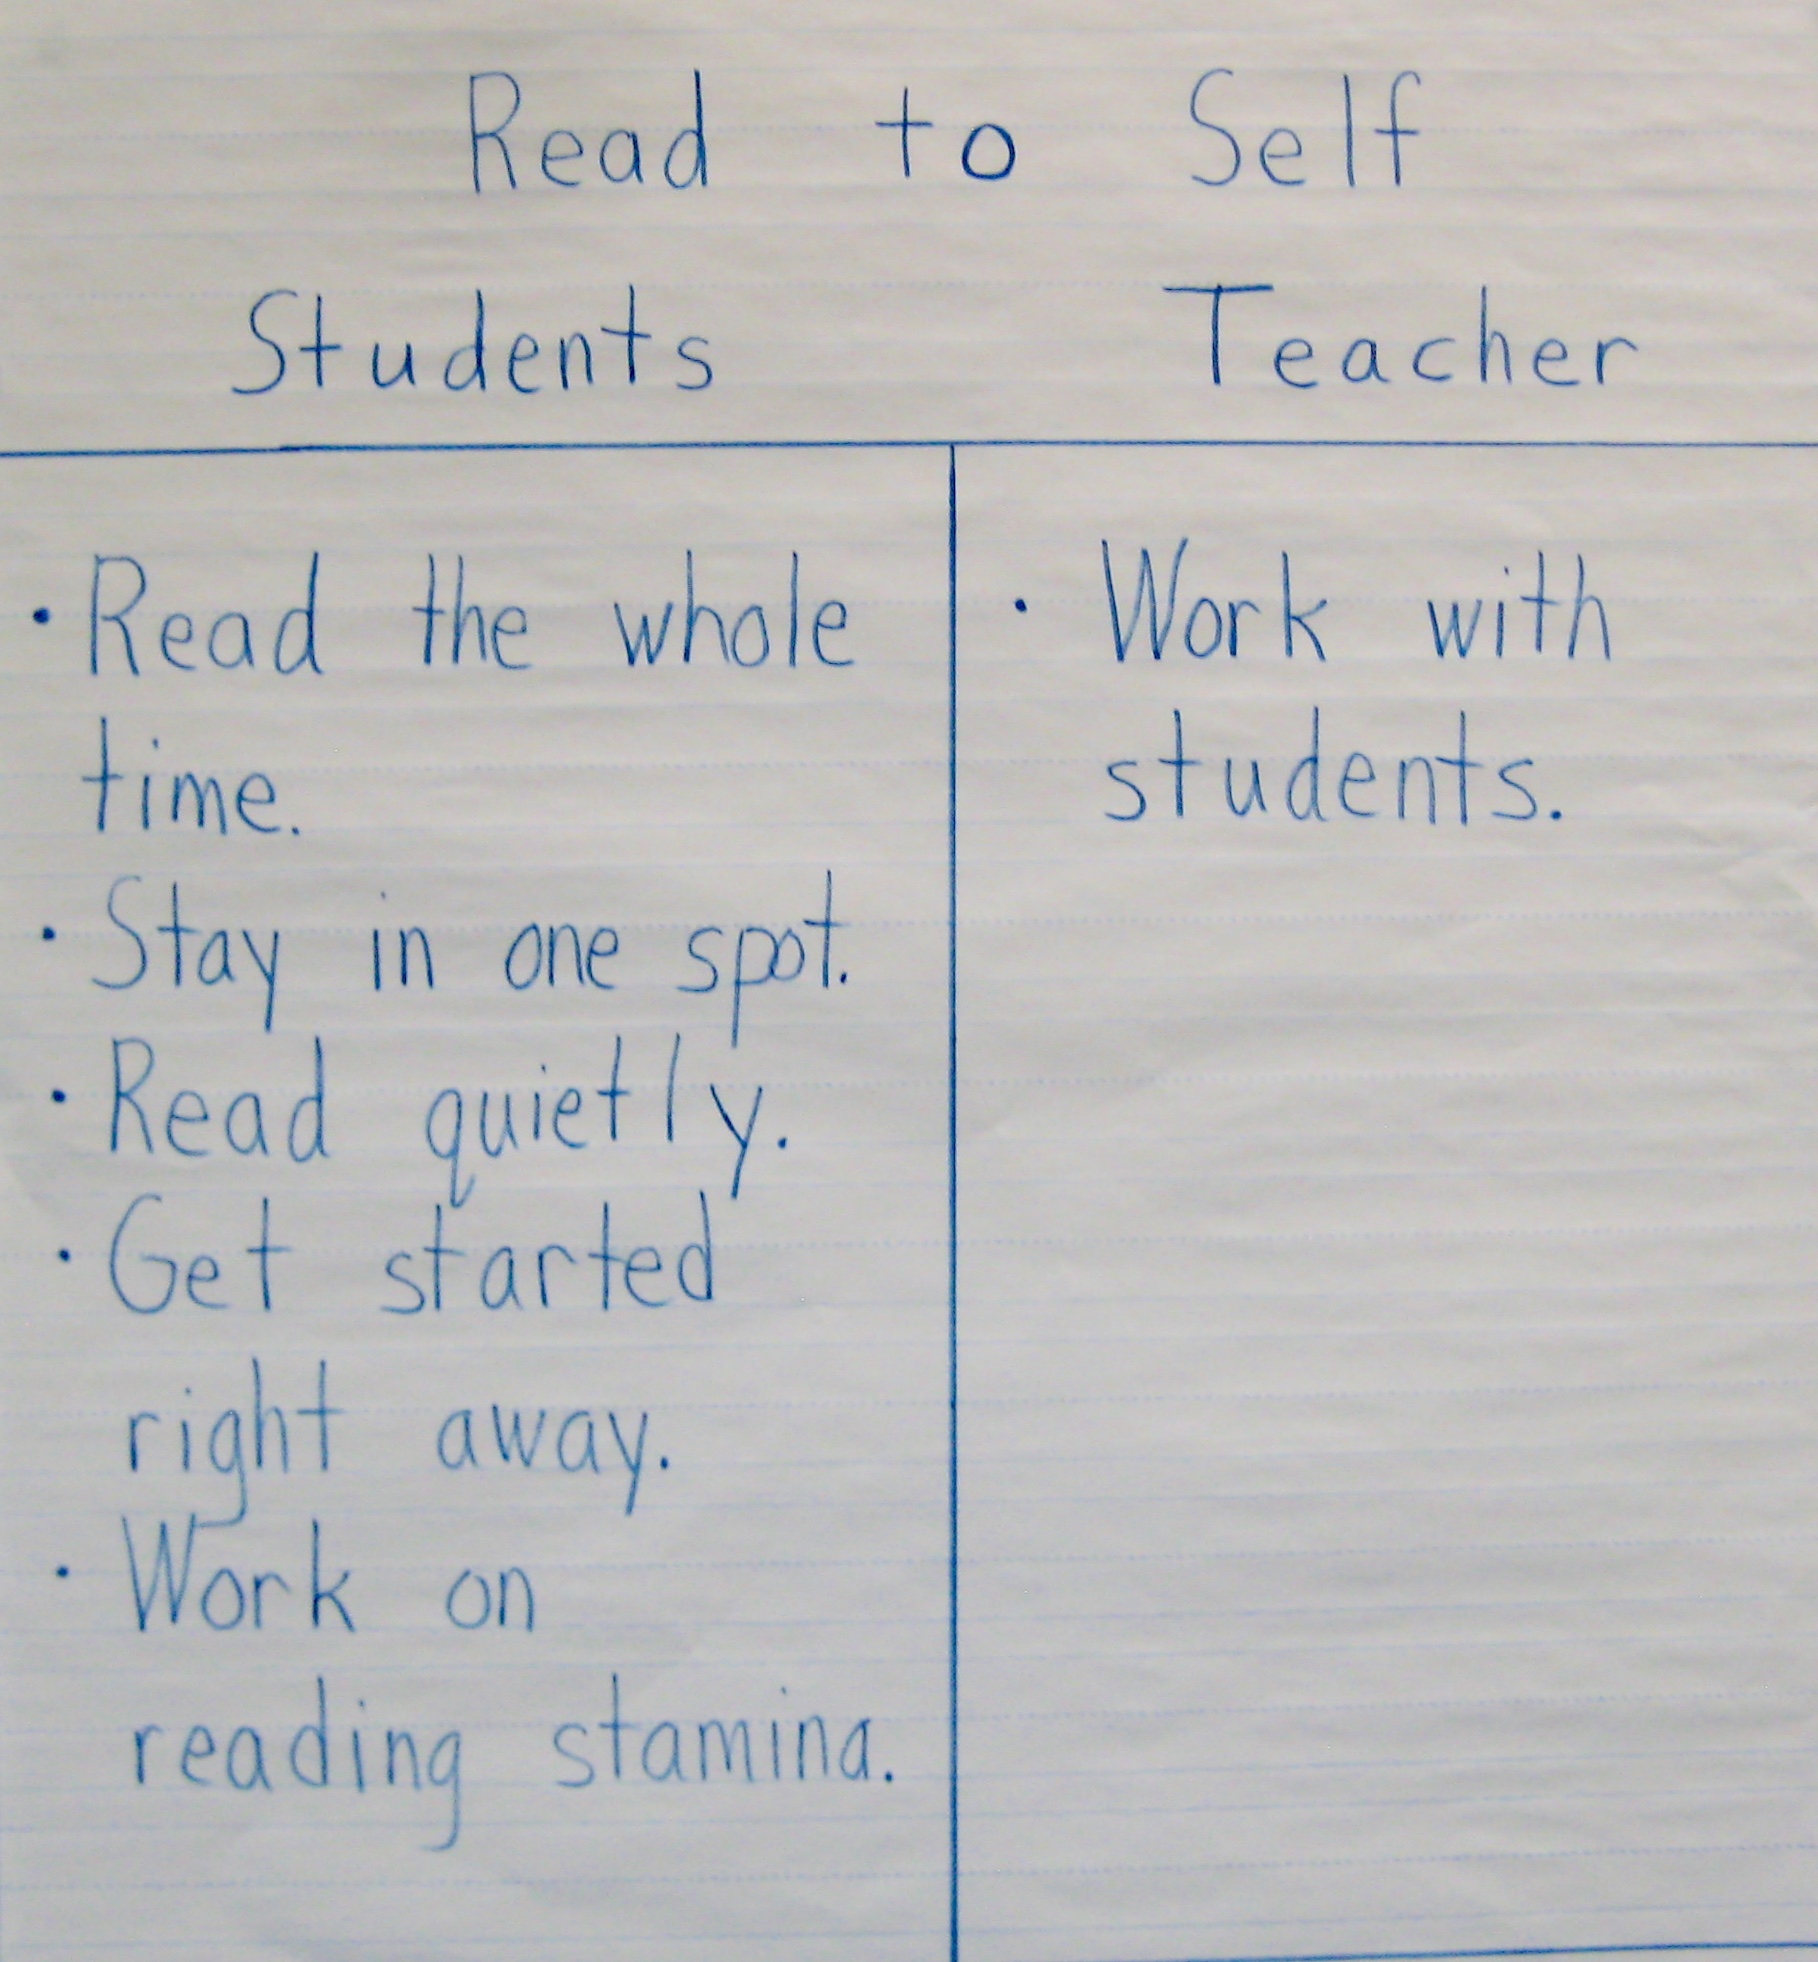 Read to Self
Students
Teacher
• Read the whole
time.
• Stay in one spot.
• Read quietly.
• Get started
right away.
• Work on
reading stamina.
• Work with
students.